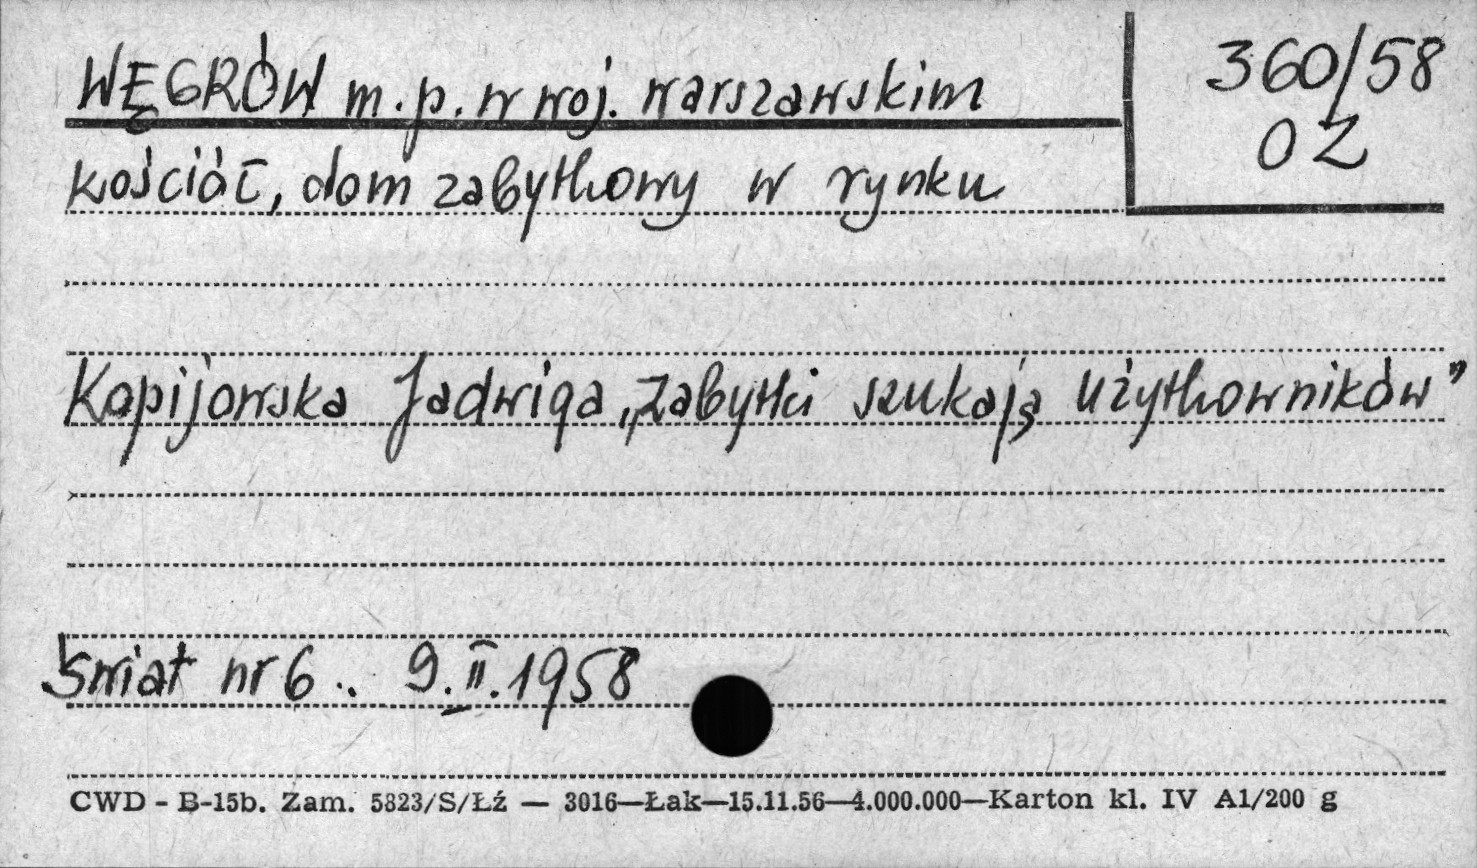 WĘGRÓW m.p. w woj. warszawskim
360/58
OZ
kościół, dom zabytkowy w rynku
Kopijowska Jadwiga „Zabytki szukają użytkowników”
Świat nr 6.. 9.II.1958
CWD - B-15b. Zam. 5823/S/Łź — 3016—Łak—15.11.56—4.000.000—Karton kl. IV A1/200 g